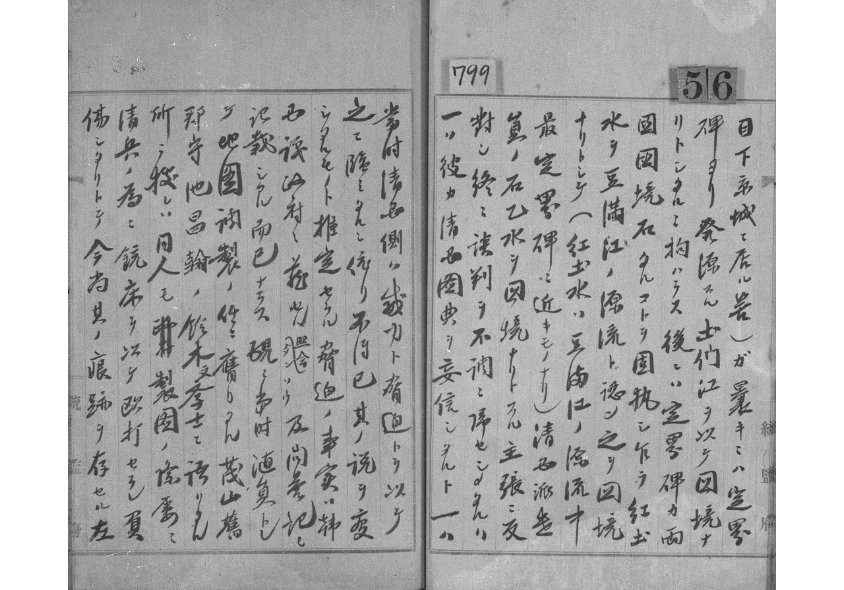 799
56
目下京城ニ居ル筈)ガ曩キニハ定界
碑ヨリ発源スル土們江ヲ以テ国境ナ
リトシタルニ拘ハラス後ニハ定界碑カ両
国国境石タルコトヲ固執シ乍ラ紅土
水ヲ豆満江ノ源流ト認メ之ヲ国境
ナリトシテ(紅土水ハ豆満江ノ源流中
最定界碑ニ近キモノナリ)清国派遣
員ノ石乙水ヲ国境ナリトスル主張ニ反
対シ終ニ談判ヲ不調ニ帰セシメタルハ
一ハ彼カ清国図典ヲ妄信シタルト一ハ
当時清国側ハ威力ト脅迫トヲ以テ
之ニ臨ミタルニ依リ不得已其ノ説ヲ変
シタルモノト推定セラル脅迫ノ事実ハ韓
国議政府ニ蔵スル及問答記ニ
記載シアル而已ナラス現ニ当時随員トシ
テ地図調製ノ任ニ膺リタル茂山旧
郡守池昌翰ノ鈴木文学士ニ語リタル
所ニ拠レハ同人モ製図ノ際
清兵ノ為ニ銃床ヲ以テ殴打セラレ負
傷シタリトテ今尚其ノ痕跡ヲ存セル左
統監府